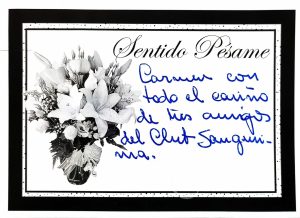 Sentido Pésame
Carmen con
todo el cariño
de tus amigos
del Club Sangui-
ma.